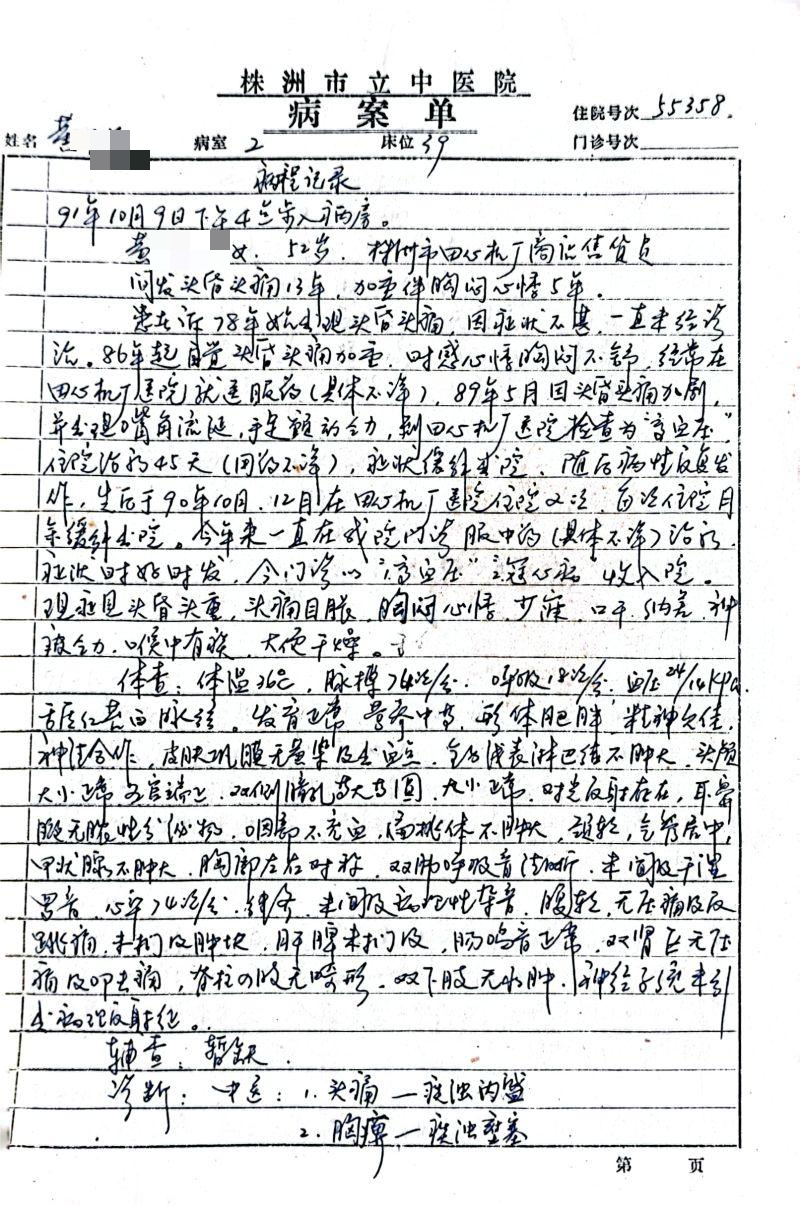 株洲市立中医院
病案单
住院号次 55358.
姓名 黄 病室 2 床位 39 门诊号次
病程记录
91年10月9日下午4点步入病房。
黄 女. 52岁. 株洲市田心机厂商店售货员
间发头昏头痛13年, 加重伴胸闷心悸5年.
患者近78年始出现头昏头痛, 因症状不甚, 一直未经诊
治。86年起自觉头昏头痛加重, 时感心悸胸闷不舒, 经常在
田心机厂医院就医服药(具体不详), 89年5月因头昏头痛加剧,
并出现口角流涎, 手足颤动乏力, 到田心机厂医院检查为"高血压"
住院治疗45天(用药不详), 症状缓解出院. 随后病性反复发
作, 先后于90年10月.12月在田心机厂医院住院2次, 每次住院月
余缓解出院。今年来一直在我院门诊服中药(具体不详)治疗
症状时好时发, 今门诊以"高血压""冠心病"收入院。
现症见头昏头重, 头痛目胀, 胸闷心悸, 少寐, 口干, 纳差, 神
疲乏力, 喉中有痰, 大便干燥。
体查: 体温36℃, 脉搏74次/分. 呼吸18次/分. 血压24/14KPa.
舌质红苔白脉弦。发育正常 营养中等, 形体肥胖, 精神欠佳,
神清合作, 皮肤巩膜无黄染及出血点, 全身浅表淋巴结不肿大, 头颅
大小正常 五官端正, 双侧瞳孔等大等圆, 大小正常, 对光反射存在, 耳鼻
腔无脓性分泌物, 咽部不充血, 扁桃体不肿大, 颈软, 气管居中,
甲状腺不肿大, 胸部左右对称, 双肺呼吸音清晰, 未闻及干湿
罗音, 心率74次/分, 律齐, 未闻及病理性杂音, 腹软, 无压痛及反
跳痛, 未扪及肿块, 肝脾未扪及, 肠鸣音正常, 双肾区无压
痛及叩击痛, 脊柱四肢无畸形, 双下肢无水肿. 神经系统未引
出病理反射征。
辅查: 暂缺.
诊断: 中医: 1. 头痛 — 痰浊内盛
2. 胸痹 — 痰浊壅塞
第 页